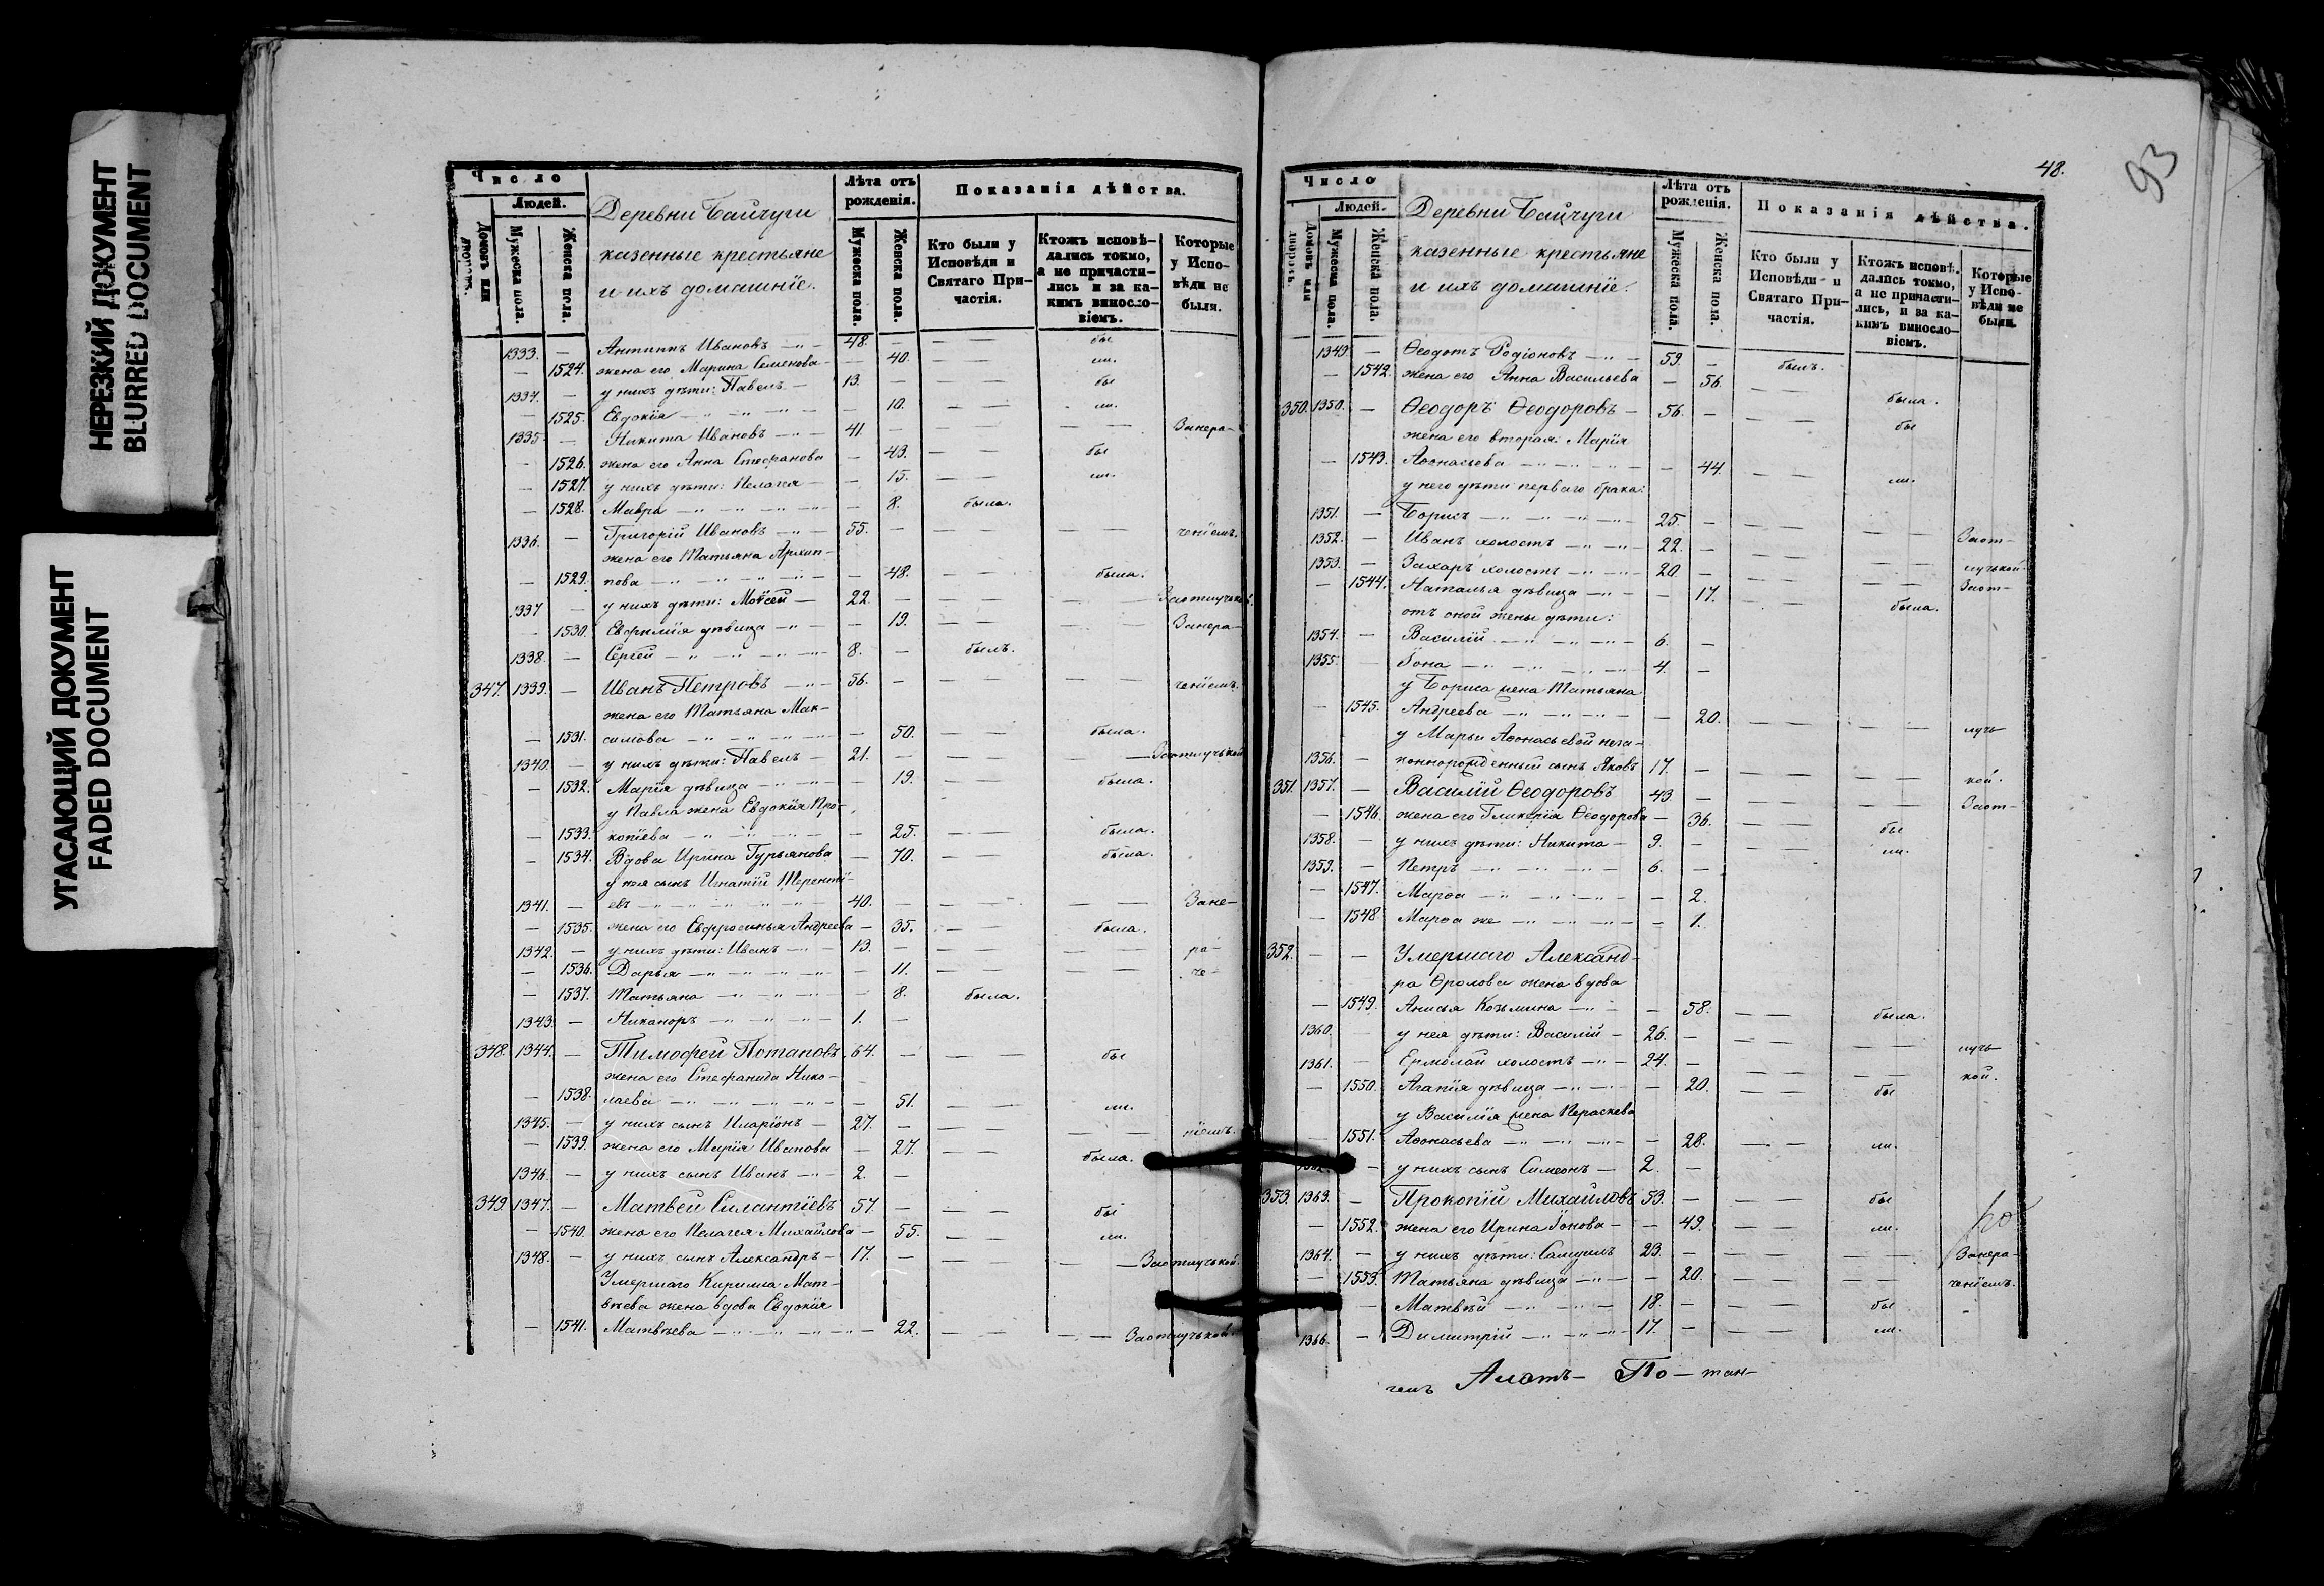 НЕРЕЗКИЙ ДОКУМЕНТ
BLURRED DOCUMENT
УГАСАЮЩИЙ ДОКУМЕНТ
FADED DOCUMENT
Число
Людей.
Домовъ или дворовъ.
Мужеска пола.
Женска пола.
Деревни Байчуги
казенные крестьяне
и ихъ домашніе.
Лѣта отъ рожденія.
Мужеска пола.
Женска пола.
Показанія дѣйства.
Кто были у Исповѣди и Святаго Причастія.
Ктожъ исповѣдались токмо, а не причастились и за какимъ винословіемъ.
Которые у Исповѣди не были.
1333. — Антипъ Ивановъ — 48. — бы
— 1524. жена его Марина Семенова — 40. ли.
1334. — у нихъ дѣти: Павелъ — 13. — бы
— 1525. Евдокія — 10. ли.
1335. — Никита Ивановъ — 41. — Занера-
— 1526. жена его Анна Стефанова — 43. бы
— 1527. у нихъ дѣти: Пелагея — 15. ли.
— 1528. Мавра — 8. была.
1336. — Григорій Ивановъ — 55. — ченіемъ.
жена его Татьяна Архип-
— 1529. пова — 48. была.
1337 — у нихъ дѣти: Моѵсей — 22. — Заотлучькой.
— 1530. Евфимія дѣвица — 19. Занера-
1338. — Сергей — 8. — былъ.
347. 1339. — Иванъ Петровъ — 56. — ченіемъ.
жена его Татьяна Мак-
— 1531. симова — 50. была.
1340. — у нихъ дѣти: Павелъ — 21. — Заотлучькой
— 1532. Марія дѣвица — 19. была.
у Павла жена Евдокія Про-
— 1533. копіева — 25. была.
— 1534. Вдова Ирина Гурьянова — 70. была.
у нея сынъ Игнатій Теренті-
1341. — евъ — 40. — Зане-
— 1535. жена его Евфросинья Андреева — 35. была.
1342. — у нихъ дѣти: Иванъ — 13. — ра-
— 1536. Дарья — 11. че-
— 1537. Татьяна — 8. была.
1343. — Никаноръ — 1. —
348. 1344. — Тимофей Потаповъ 64. — бы
жена его Стефанида Нико-
— 1538. лаева — 51. ли.
1345. — у нихъ сынъ Иларіонъ — 27. — ніемъ.
— 1539. жена его Марія Иванова — 27. была.
1346. — у нихъ сынъ Иванъ — 2. —
349. 1347. — Матвей Силантіевъ 57. — бы
— 1540. жена его Пелагея Михайлова — 55. ли.
1348. — у нихъ сынъ Александръ — 17. — Заотлучькой.
Умершаго Кирилла Мат-
вѣева жена вдова Евдокія
— 1541. Матвѣева — 22. Заотлучькой.
48.
93
Число
Людей.
Домовъ или дворовъ.
Мужеска пола.
Женска пола.
Деревни Байчуги
казенные крестьяне
и ихъ домашніе.
Лѣта отъ рожденія.
Мужеска пола.
Женска пола.
Показанія дѣйства.
Кто были у Исповѣди и Святаго Причастія.
Ктожъ исповѣдались токмо, а не причастились, и за какимъ винословіемъ.
Которые у Исповѣди не были.
1349 — Ѳеодотъ Родіоновъ — 59. — былъ.
— 1542. жена его Анна Васильева — 56. была.
350. 1350. — Ѳеодоръ Ѳеодоровъ — 56. — бы
жена его вторая: Марія
— 1543. Аѳонасьева — 44. ли.
у него дѣти перваго брака:
1351. — Борисъ — 25. — Заот-
1352. — Иванъ холостъ — 22. — лучькой
1353. — Захаръ холостъ — 20. — Заот-
— 1544. Наталья дѣвица — 17. была.
отъ оной жены дѣти:
1354. — Василій — 6. —
1355. — Іона — 4. —
у Бориса жена Татьяна
— 1545. Андреева — 20. лучь
у Марьи Аѳонасьевой неза-
1356. — коннорожденный сынъ Яковъ 17. — кой.
351. 1357. — Василій Ѳеодоровъ 43 — Заот-
— 1546. жена его Гликерія Ѳеодорова — 36. бы
1358. — у нихъ дѣти: Никита — 9. — ли.
1359. — Петръ — 6. —
— 1547. Марѳа — 2.
— 1548. Марѳа же — 1.
352. — — Умершаго Александ-
ра Ѳролова жена вдова
— 1549. Анисья Козьмина — 58. была.
1360. у нея дѣти: Василій — 26. — лучь
1361. — Ермолай холостъ — 24. — кой.
— 1550. Агапія дѣвица — 20. бы
у Василія жена Параскева
— 1551. Аѳонасьева — 28. ли.
— у нихъ сынъ Симеонъ — 2. —
353. 1363. — Прокопій Михайловъ 53. — бы
— 1552. жена его Ирина Іонова — 49. ли.
1364. — у нихъ дѣти: Самуилъ 23. — Занера-
— 1553. Татьяна дѣвица — 20. ченіемъ.
— Матвѣй — 18. — бы
1366. — Димитрій — 17. — ли.